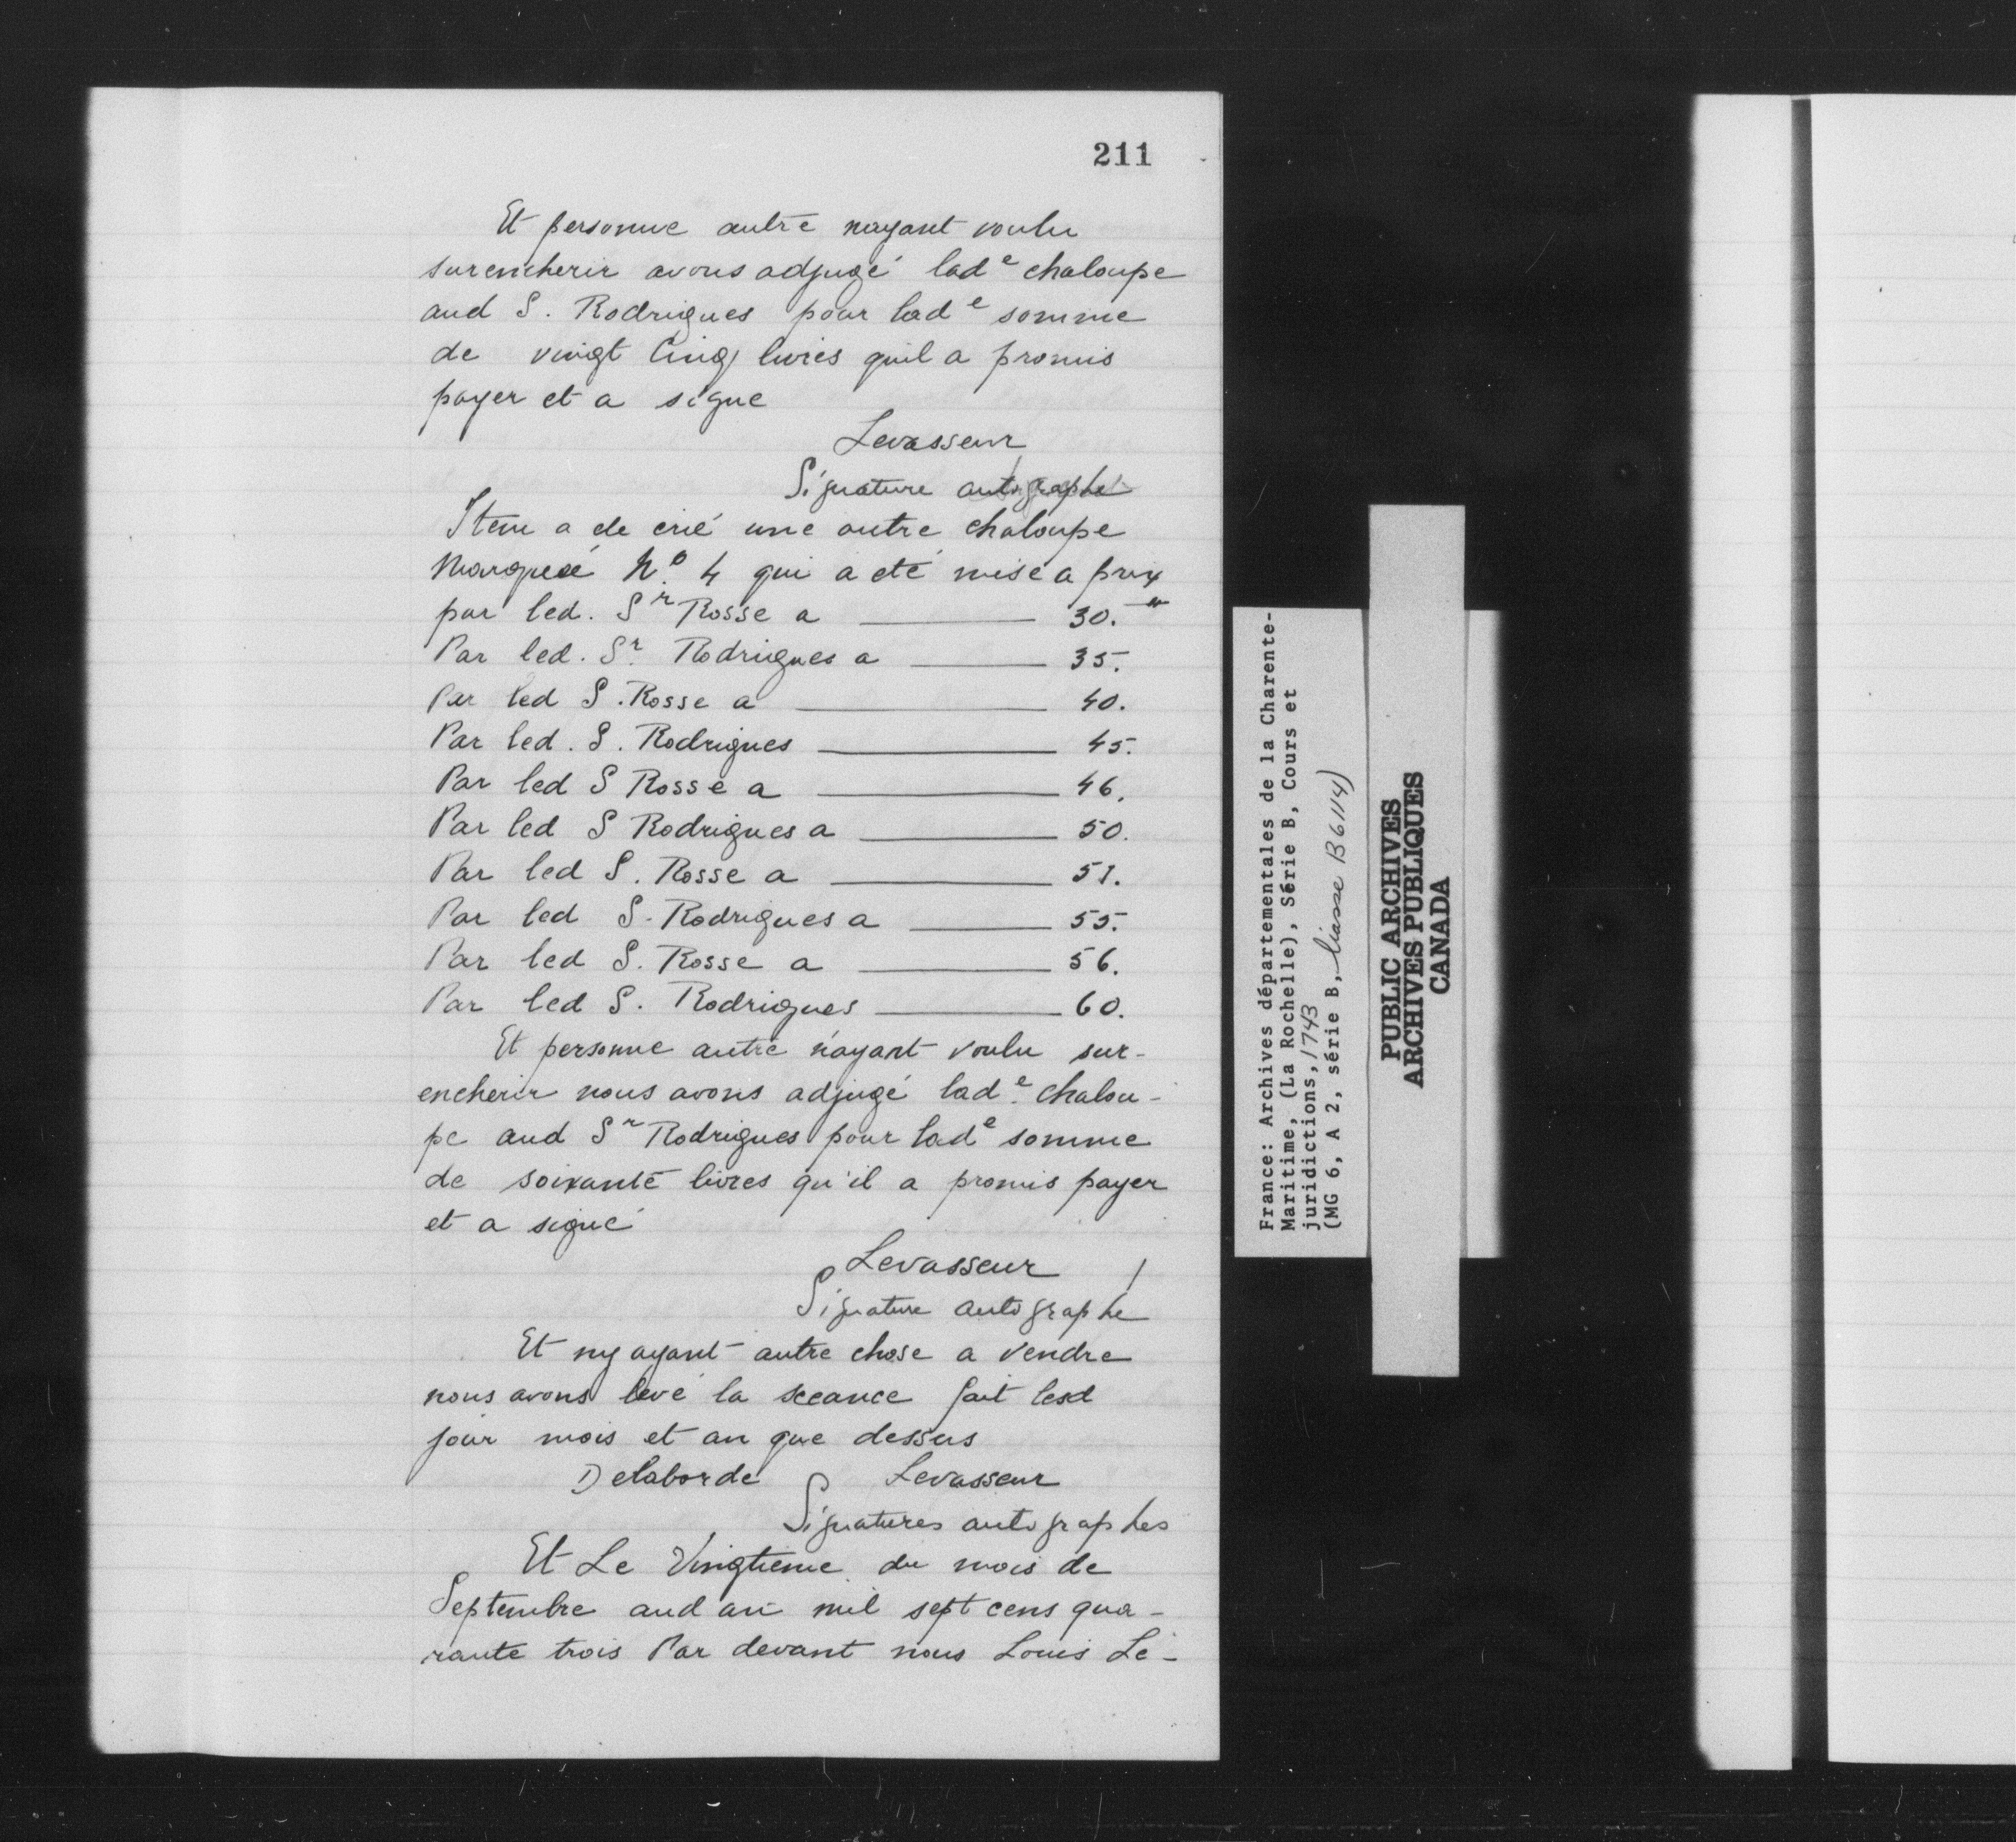 211
Et personne autre nayant voulu
surencherir avons adjugé lad e chaloupe
aud S. Rodrigues pour lad e somme
de vingt Cinq livres quil a promis
payer et a signe
Levasseur
Signature autographe
Item a ete crié une autre chaloupe
Marqueé No. 4 qui a eté mise a prix
par led. Sr Rosse a —— 30.tt
Par led. Sr. Rodrigues a —— 35.
Par led S. Rosse a —— 40.
Par led. S. Rodrigues —— 45.
Par led S Rosse a —— 46.
Par led S Rodrigues a —— 50.
Par led S. Rosse a —— 51.
Par led S. Rodrigues a —— 55.
Par led S. Rosse a —— 56.
Par led S. Rodrigues —— 60.
Et personne autre n'ayant voulu sur-
encherir nous avons adjugé lad.e chalou-
pe aud Sr Rodrigues pour lad e somme
de soixante livres qu'il a promis payer
et a signé
Levasseur
Signature autographe
Et ny ayant autre chose a vendre
nous avons levé la sceance fait lesd
jour mois et an que dessus
Delaborde Levasseur
Signatures autographes
Et Le Vingtieme du mois de
Septembre aud an mil sept cens qua-
rante trois Par devant nous Louis Le-
France: Archives départementales de la Charente-
Maritime, (La Rochelle), Série B, Cours et
juridictions, 1743
(MG 6, A 2, série B, liasse B 6114)
PUBLIC ARCHIVES
ARCHIVES PUBLIQUES
CANADA